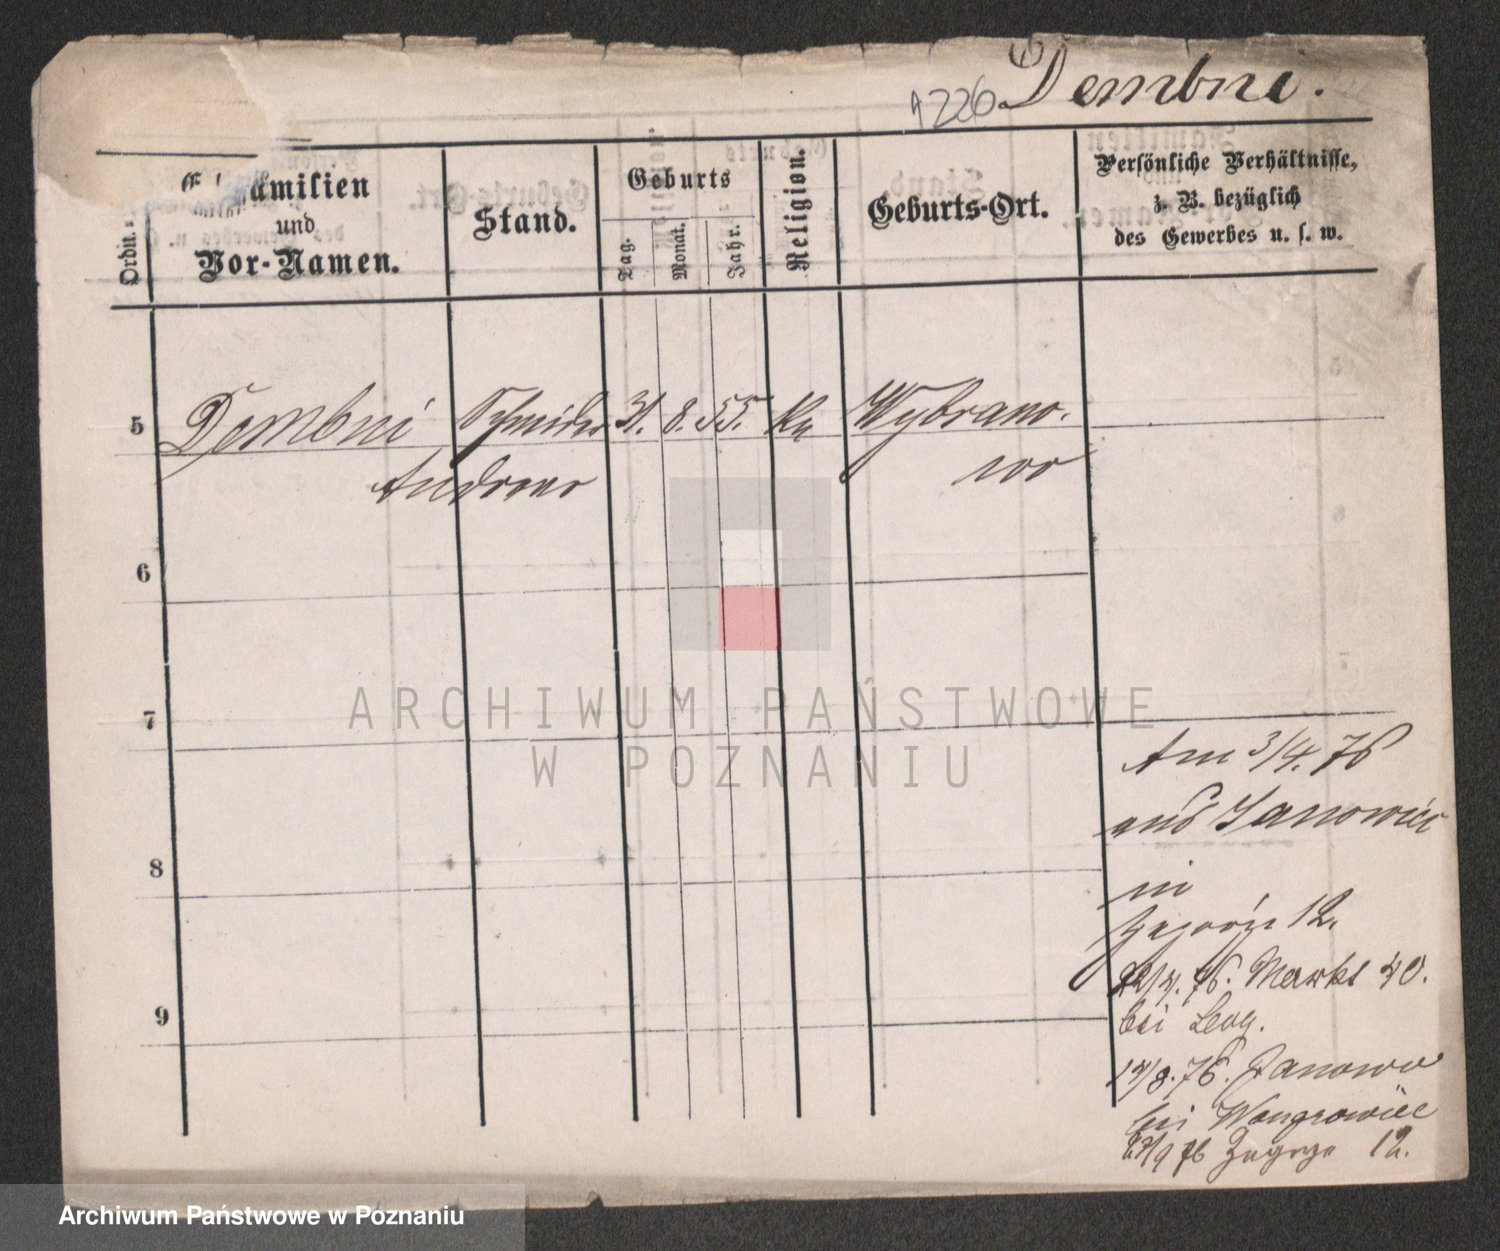 1226 Dembni.
Ordn.=
Familien
und
Vor-Namen.
Stand.
Geburts
Tag.
Monat.
Jahr.
Religion.
Geburts-Ort.
Persönliche Verhältnisse,
z. B. bezüglich
des Gewerbes u. s. w.
5 Dembni Schneider 31. 8. 55. Ka Wybrano-
Andreas wo
6
7
8
9
Am 3/4. 76
aus Janowiec
in
Zagórze 12.
22/4. 76. Markt 40.
bei Levy.
14/8. 76. Janowo
bei Wongrowiec
27/9 76 Zagrze 12.
ARCHIWUM PAŃSTWOWE
W POZNANIU
Archiwum Państwowe w Poznaniu